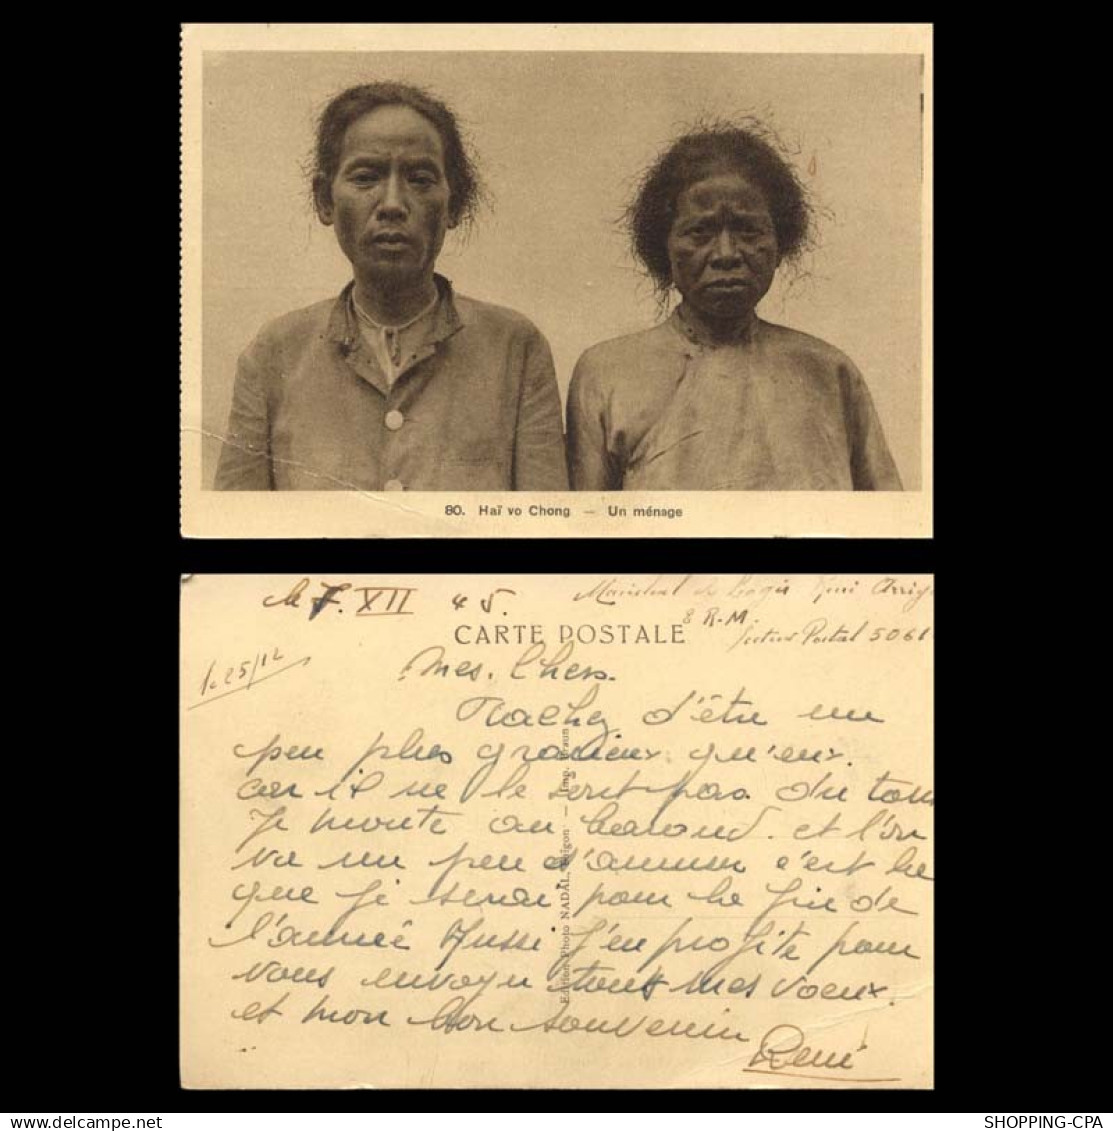 80. Haï vo Chong — Un ménage
le 7. XII 45.
Maréchal de Logis René
8 R.M.
Secteur Postal 5061
CARTE POSTALE
25/12
Mes. Chers.
Tachez d'être un
peu plus gracieux qu'eux.
car il ne le sont pas du tout
Je monte au baroud. et l'on
va un peu s'amuser c'est
que je serai pour la fin de
l'année Aussi J'en profite pour
vous envoyer tous mes voeux.
et mon bon souvenir
René
Edition Photo NADAL, Saigon — Imp. Braun
SHOPPING-CPA